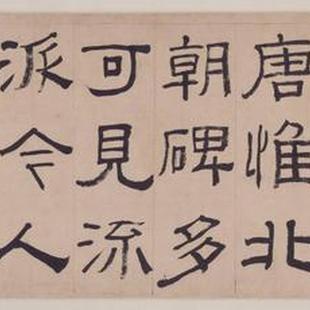 唐惟北
朝碑多
可見流
派令人